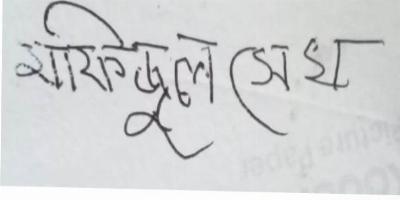 সাফিজুল সেখ